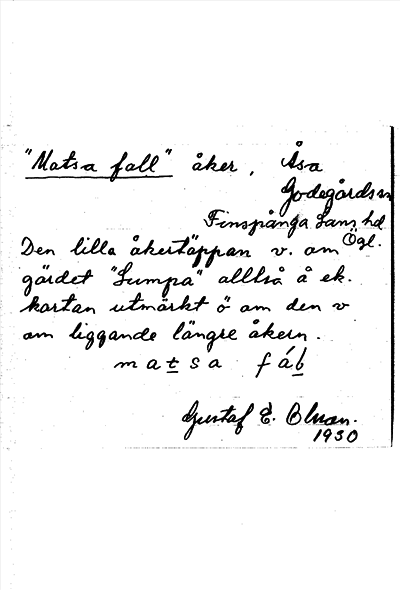 "Matsa fall" åker, Åsa
Godegårds sn
Finspånga läns hd
Ögl.
Den lilla åkertäppan v. om
gärdet "Lumpa" alltså å ek.
kartan utmärkt ö om den v
om liggande längre åkern.
matsa fáb
Gustaf E.
1930